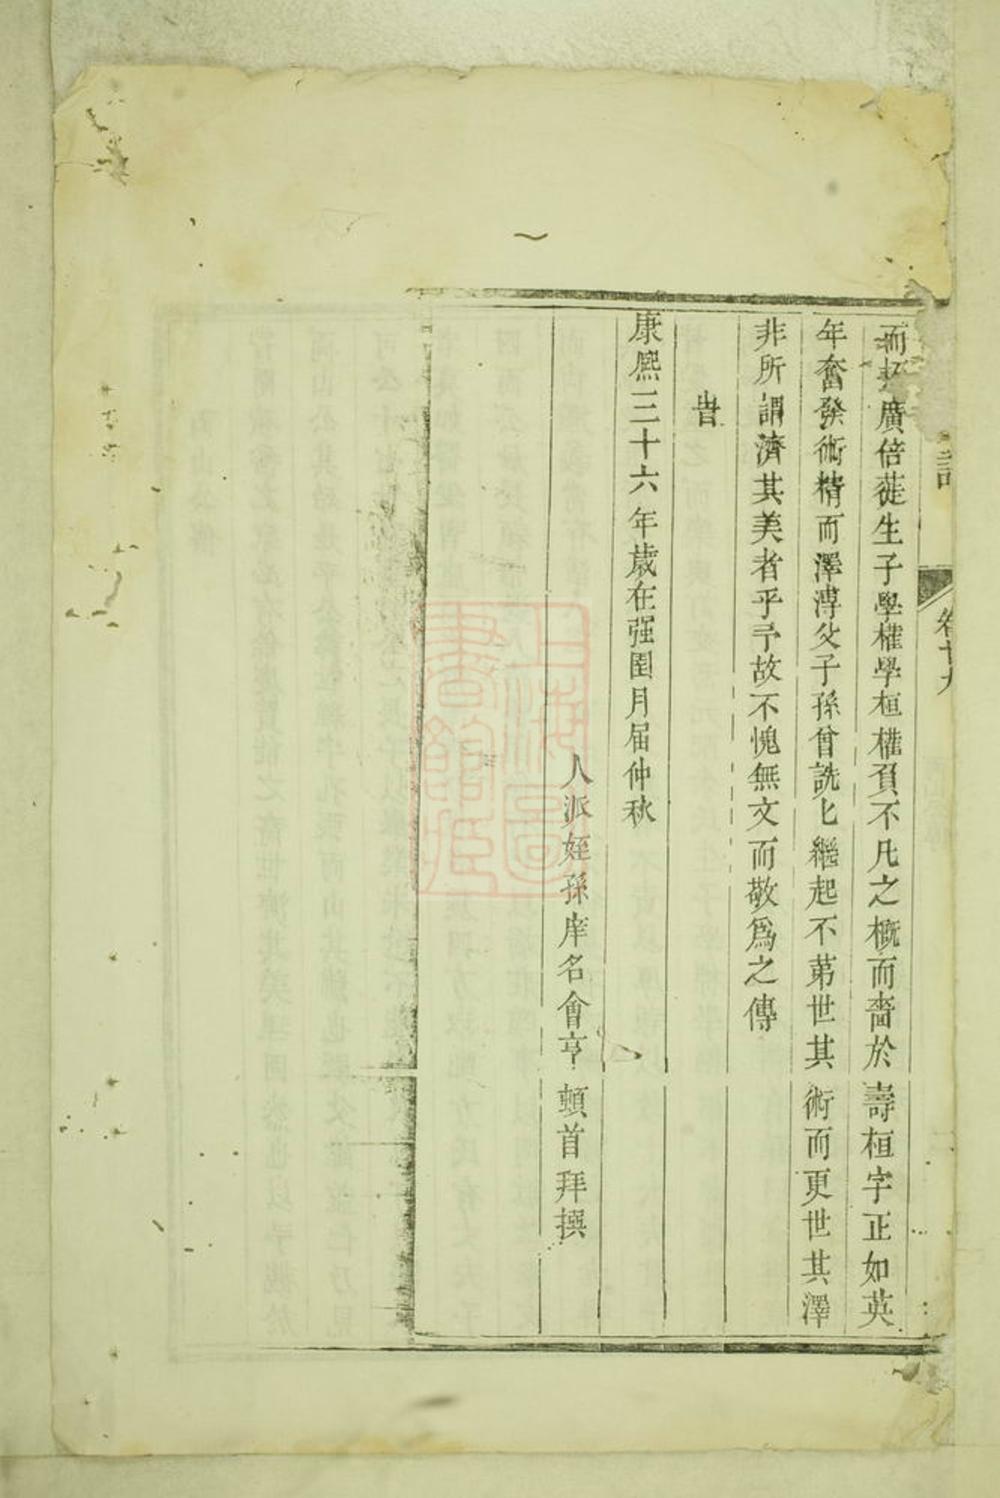 卷十九
而拓廣倍蓰生子學權學桓權負不凡之概而嗇於壽桓字正如英
年奮發術精而澤溥父子孫曾詵匕繼起不第世其術而更世其澤
非所謂濟其美者乎予故不愧無文而敬為之傳
旹
康熙三十六年歲在强圉月届仲秋
人派姪孫庠名會亨頓首拜撰
上海圖書館藏